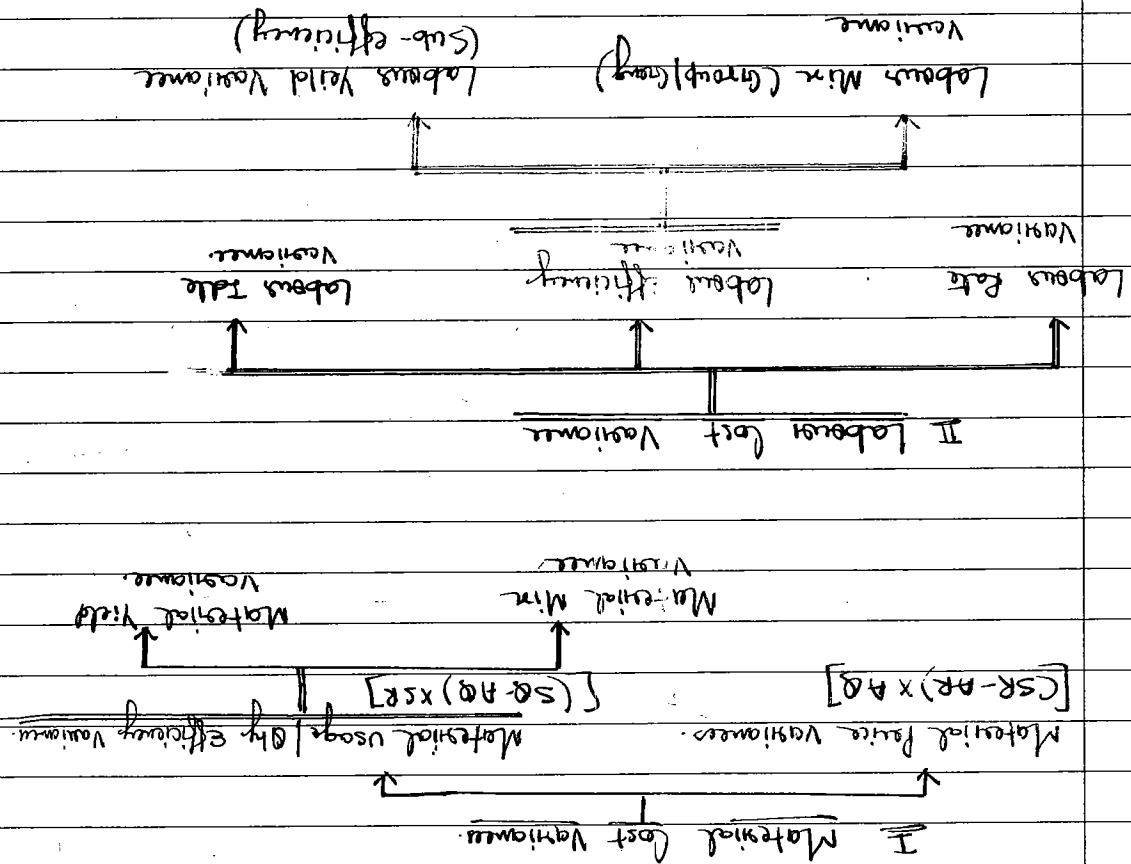 I Material Cost Variances.
Material Price Variances. Material Usage / Qty Efficiency Variance.
[(SR-AR) X AQ] [(SQ-AQ) X SR]
Material Mix Variance Material Yield Variance.
II Labour Cost Variance
Labour Rate Variance Labour Efficiency Variance Labour Idle Variance.
Labour Mix (Group/Gang) Variance Labour Yeild Variance (Sub-efficiency)